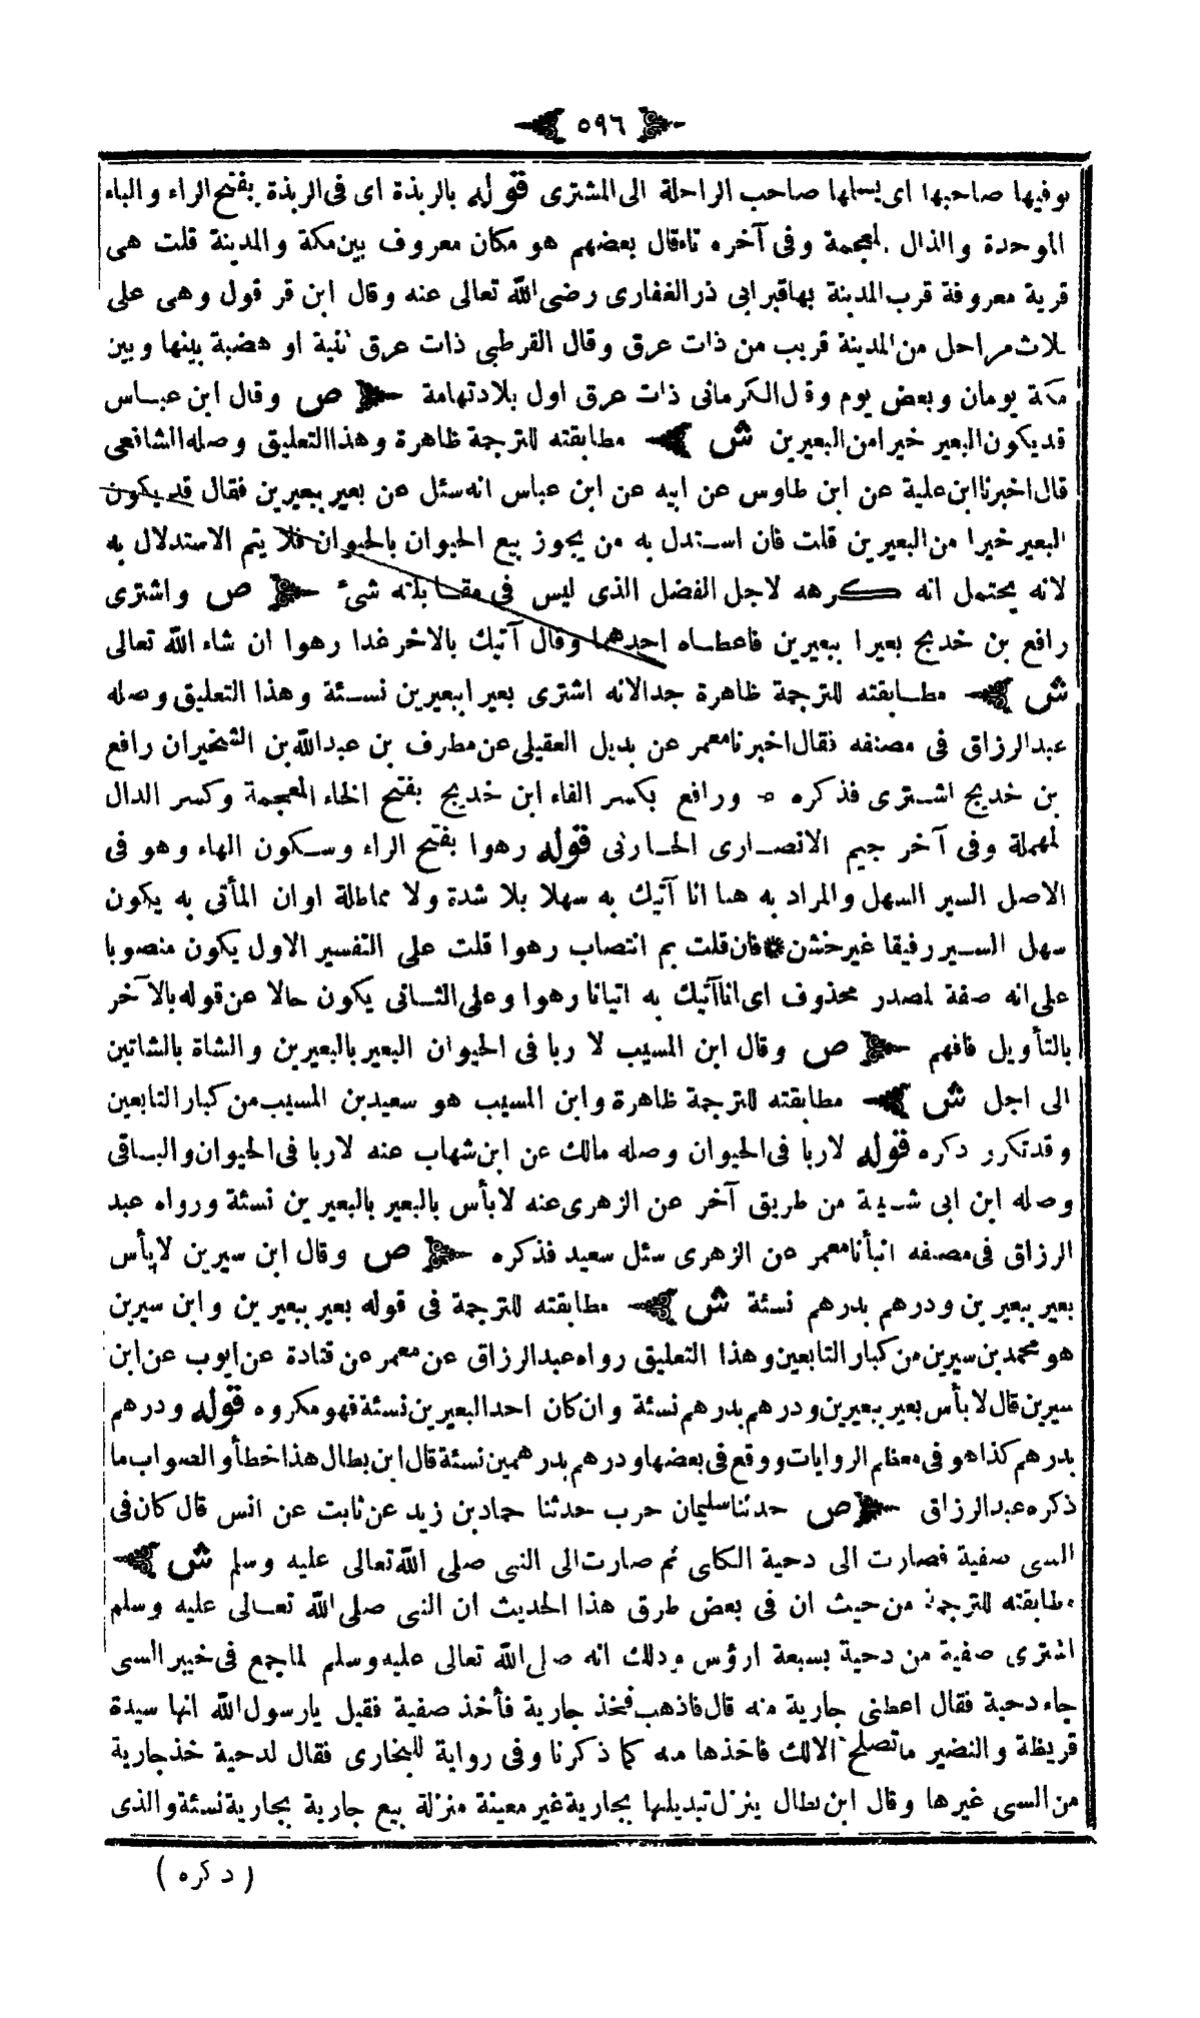 ٥٩٦
يوفيها صاحبها اى يسلمها صاحب الراحلة الى المشترى قوله بالربذة اى فى الربذة بفتح الراء والباء
الموحدة والذال المعجمة وفى آخره تاء قال بعضهم هو مكان معروف بين مكة والمدينة قلت هى
قرية معروفة قرب المدينة بها قبر ابى ذر الغفارى رضى الله تعالى عنه وقال ابن قرقول وهى على
ثلاث مراحل من المدينة قريب من ذات عرق وقال القرطبى ذات عرق ثنية او هضبة بينها وبين
مكة يومان وبعض يوم وقال الكرمانى ذات عرق اول بلاد تهامة ص وقال ابن عباس
قد يكون البعير خيرا من البعيرين ش مطابقته للترجمة ظاهرة وهذا التعليق وصله الشافعى
قال اخبرنا ابن علية عن ابن طاوس عن ابيه عن ابن عباس انه سئل عن بعير ببعيرين فقال قد يكون
البعير خيرا من البعيرين قلت فان استدل به من يجوز بيع الحيوان بالحيوان فلا يتم الاستدلال به
لانه يحتمل انه كرهه لاجل الفضل الذى ليس فى مقابلته شئ ص واشترى
رافع بن خديج بعيرا ببعيرين فاعطاه احدهما وقال آتيك بالاخر غدا رهوا ان شاء الله تعالى
ش مطابقته للترجمة ظاهرة جدا لانه اشترى بعيرا ببعيرين نسئة وهذا التعليق وصله
عبد الرزاق فى مصنفه فقال اخبرنا معمر عن بديل العقيلى عن مطرف بن عبد الله بن الشخيران رافع
بن خديج اشترى فذكره ورافع بكسر الفاء ابن خديج بفتح الخاء المعجمة وكسر الدال
المهملة وفى آخر جيم الانصارى الحارثى قوله رهوا بفتح الراء وسكون الهاء وهو فى
الاصل السير السهل والمراد به هنا انا آتيك به سهلا بلا شدة ولا مماطلة او ان المأتى به يكون
سهل السير رفيقا غير خشن * فان قلت بم انتصاب رهوا قلت على التفسير الاول يكون منصوبا
على انه صفة لمصدر محذوف اى انا آتيك به اتيانا رهوا وعلى الثانى يكون حالا عن قوله بالآخر
بالتأويل فافهم ص وقال ابن المسيب لا ربا فى الحيوان البعير بالبعيرين والشاة بالشاتين
الى اجل ش مطابقته للترجمة ظاهرة وابن المسيب هو سعيد بن المسيب من كبار التابعين
وقد تكرر ذكره قوله لا ربا فى الحيوان وصله مالك عن ابن شهاب عنه لا ربا فى الحيوان والباقى
وصله ابن ابى شيبة من طريق آخر عن الزهرى عنه لا بأس بالبعير بالبعيرين نسئة ورواه عبد
الرزاق فى مصنفه انبأنا معمر عن الزهرى سئل سعيد فذكره ص وقال ابن سيرين لا بأس
بعير ببعيرين ودرهم بدرهم نسئة ش مطابقته للترجمة فى قوله بعير ببعيرين وابن سيرين
هو محمد بن سيرين من كبار التابعين وهذا التعليق رواه عبد الرزاق عن معمر عن قتادة عن ايوب عن ابن
سيرين قال لا بأس بعير ببعيرين ودرهم بدرهم نسئة وان كان احد البعيرين نسئة فهو مكروه قوله ودرهم
بدرهم كذا هو فى معظم الروايات ووقع فى بعضها ودرهم بدرهمين نسئة قال ابن بطال هذا خطأ والصواب ما
ذكره عبد الرزاق ص حدثنا سليمان حرب حدثنا حماد بن زيد عن ثابت عن انس قال كان فى
السبى صفية فصارت الى دحية الكلبى ثم صارت الى النبى صلى الله تعالى عليه وسلم ش
مطابقته للترجمة من حيث ان فى بعض طرق هذا الحديث ان النبى صلى الله تعالى عليه وسلم
اشترى صفية من دحية بسبعة ارؤس وذلك انه صلى الله تعالى عليه وسلم لما جمع فى خيبر السبى
جاء دحية فقال اعطنى جارية منه قال فاذهب فخذ جارية فأخذ صفية فقيل يا رسول الله انها سيدة
قريظة والنضير ما تصلح الا لك فاخذها منه كما ذكرنا وفى رواية للبخارى فقال لدحية خذ جارية
من السبى غيرها وقال ابن بطال ينزل تبديلها بجارية غير معينة منزلة بيع جارية بجارية نسئة والذى
(ذكره)